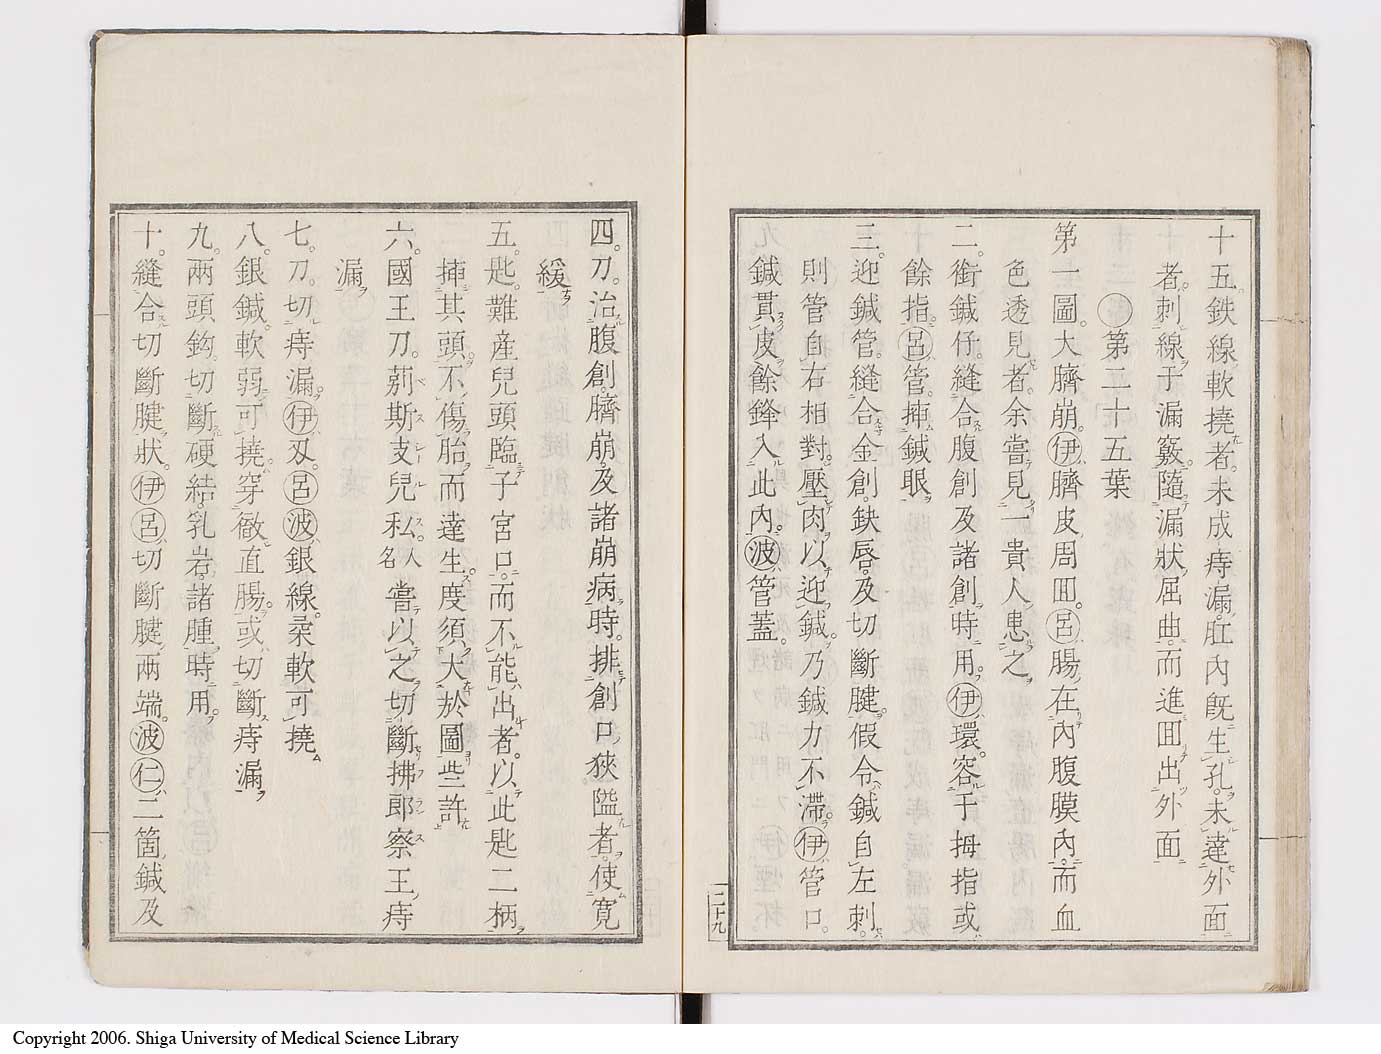 十五鉄線軟撓者。未成痔漏。肛内既生孔。未達外面
者。刺線于漏竅。隨漏狀屈曲。而進囬出外面
第二十五葉
第一圖。大臍崩。伊臍皮周囬。呂腸在内腹膜内。而血
色透見者。余嘗見一貴人患之
二。銜鍼仔。縫合腹創及諸創時用。伊環。容于拇指或
餘指。呂管。揷鍼眼
三。迎鍼管。縫合金創。鈌唇。及切斷腱。假令鍼自左刺。
則管自右相對。壓肉以迎鍼。乃鍼力不滯。伊管口。
鍼貫皮餘鋒入此内。波管蓋。
二十九
四。刀。治腹創。臍崩。及諸崩病時。排創口狹隘者。使寛
緩
五。匙。難産兒頭臨子宮口。而不能出者。以此匙二柄
揷其頭。不傷胎而達生。度須大於圖些許
六。國王刀。莂斯支兒私人名嘗以之切斷拂郎察王痔
漏
七。刀。切痔漏。伊刄。呂波銀線。柔軟可撓
八。銀鍼。軟弱可撓。穿徹直腸。或切斷痔漏
九。兩頭鈎。切斷硬結。乳岩。諸腫時用。
十。縫合切斷腱狀。伊呂切斷腱兩端。波仁二箇鍼及
Copyright 2006. Shiga University of Medical Science Library